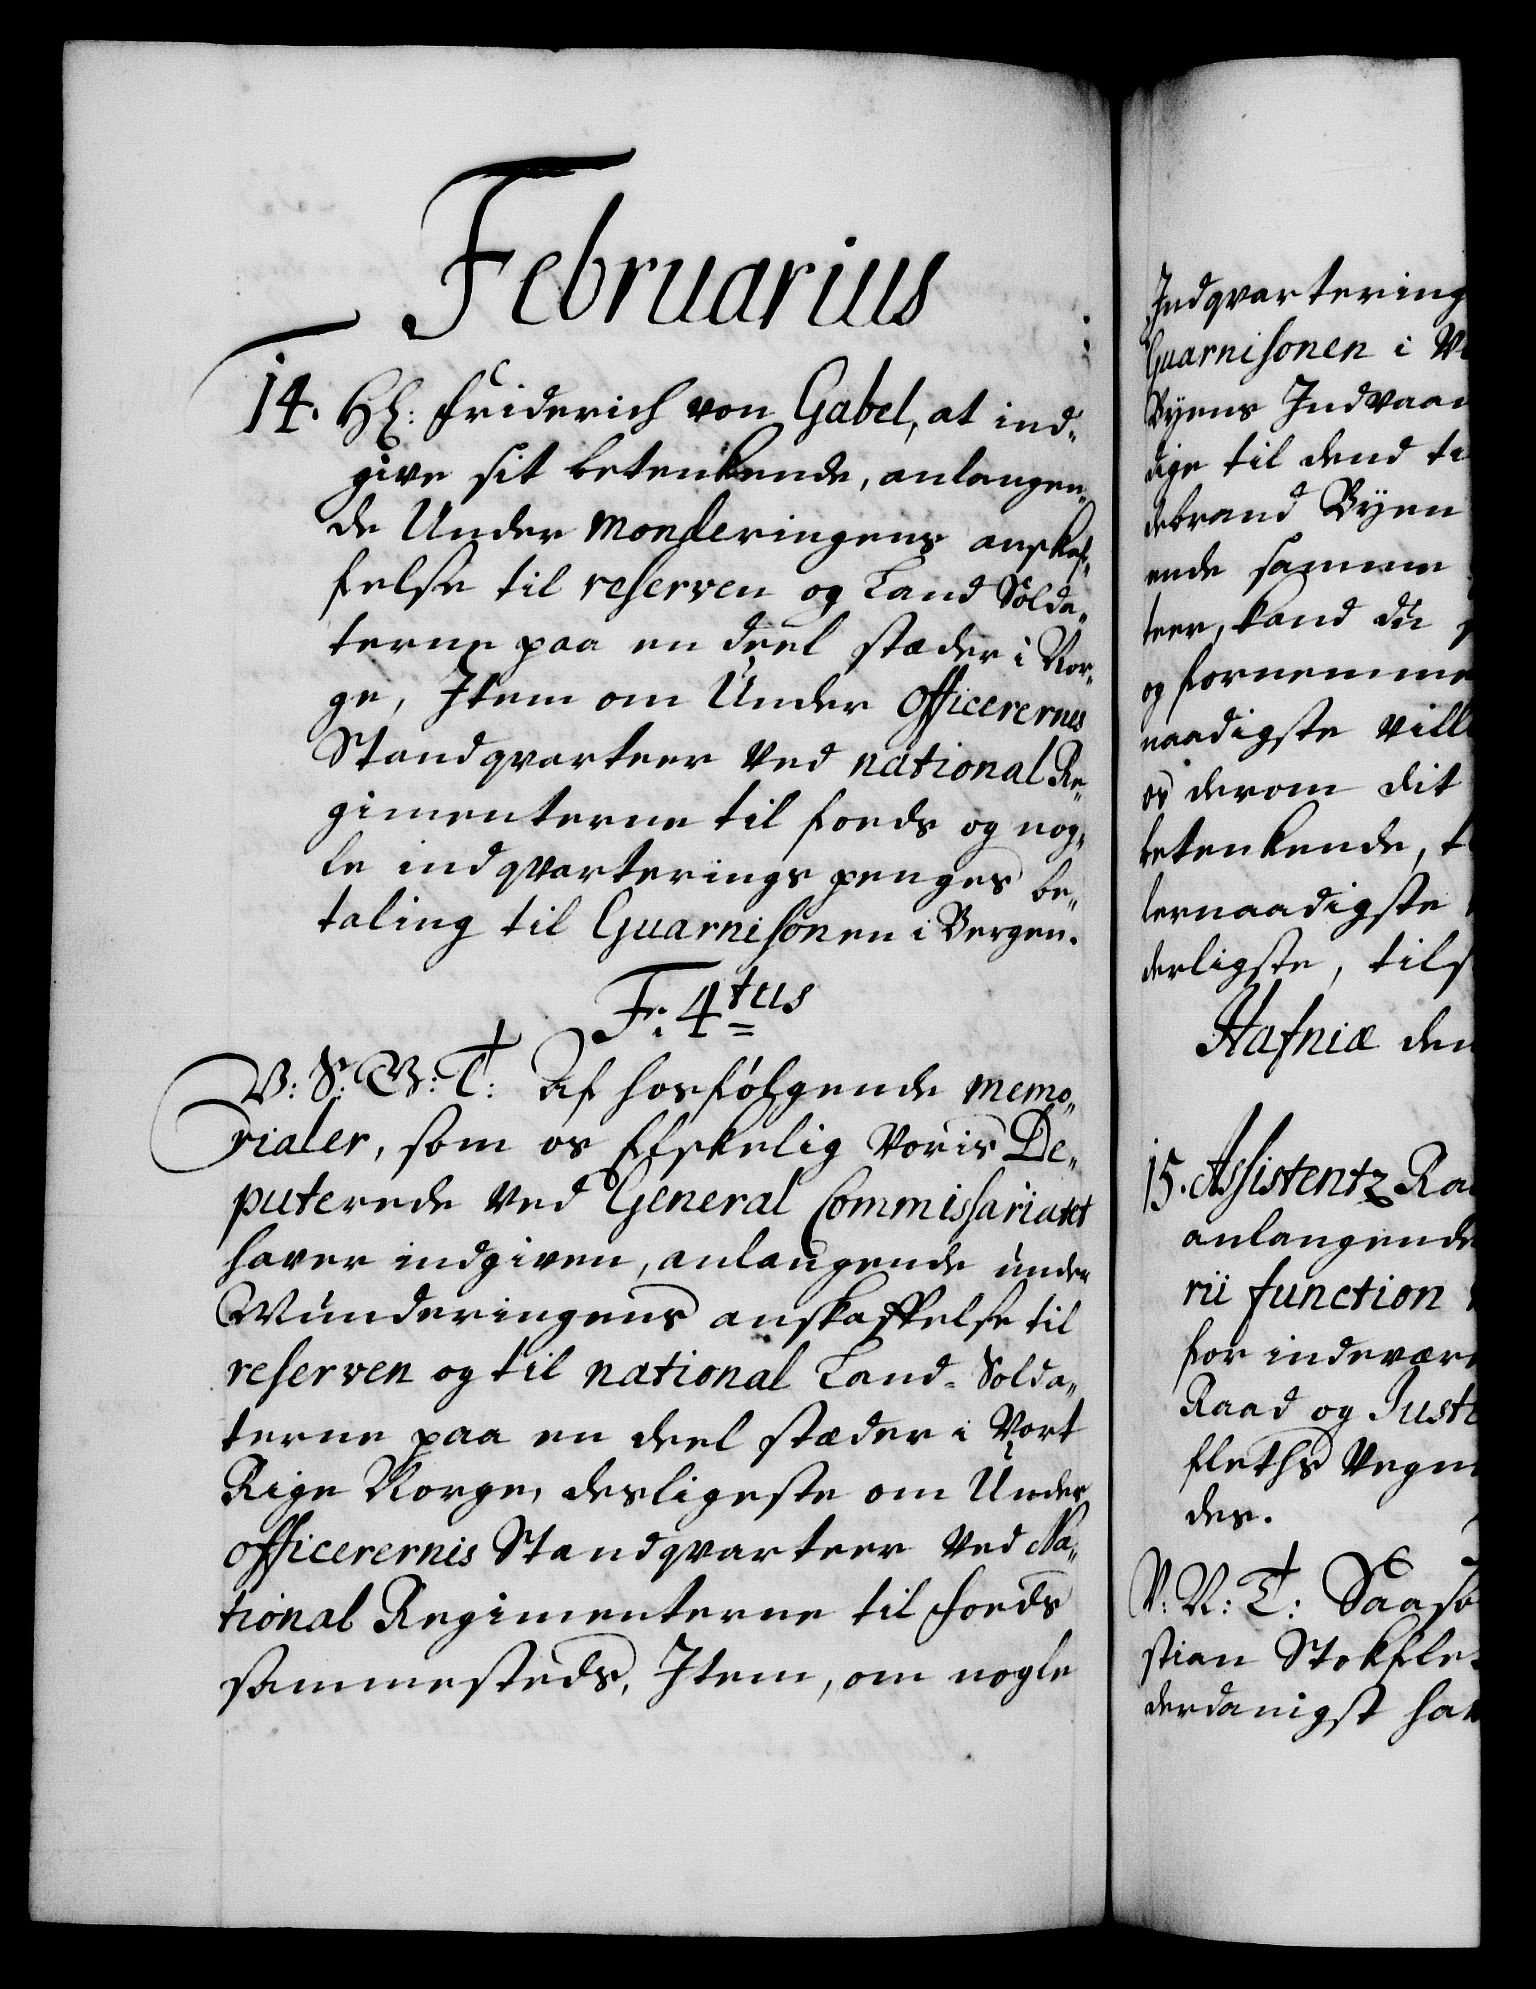 Februarius
14. Hl: Friderich von Gabel, at ind-
give sit betenkende, anlangen-
de Under Monderingens anskaf-
felse til reserven og Land Solda-
terne paa en deel stæder i Nor-
ge, Item om Under Officerernes
Standqvarteer Ved national Re-
gimenterne til foeds og nog-
le indqvarterings penges be-
taling til Guarnisonen i Bergen.
F: 4tus
V: S: G: T: Af hosfølgende memo-
rialer, som os Elskelig Voris De-
puterede Ved General Commissariatet
haver indgiven, anlaugende under
Munderingens anskaffelse til
reserven og til national Land-Solda-
terne paa en deel stæder i Vort
Rige Norge, desligeste om Under
officerernis Standqvarteer Ved Na-
tional Regimenterne til foeds
sammesteds, Item, om nogle
Indqvartering
Guarnisonen i
Byens Indvaan
dige til dend
debrand Byen
ende samme
teer, kand du
og fornemme
naadigste vill
os derom dit
betenkende,
lernaadigste
derligste, tils
Hafniæ den
15. Assistentz Ra
anlangende
rii function
for indevære
Raad og Justi
fleths Vegn
des.
V: N: T: Saaso
stian Stokfle
derdanigst hav